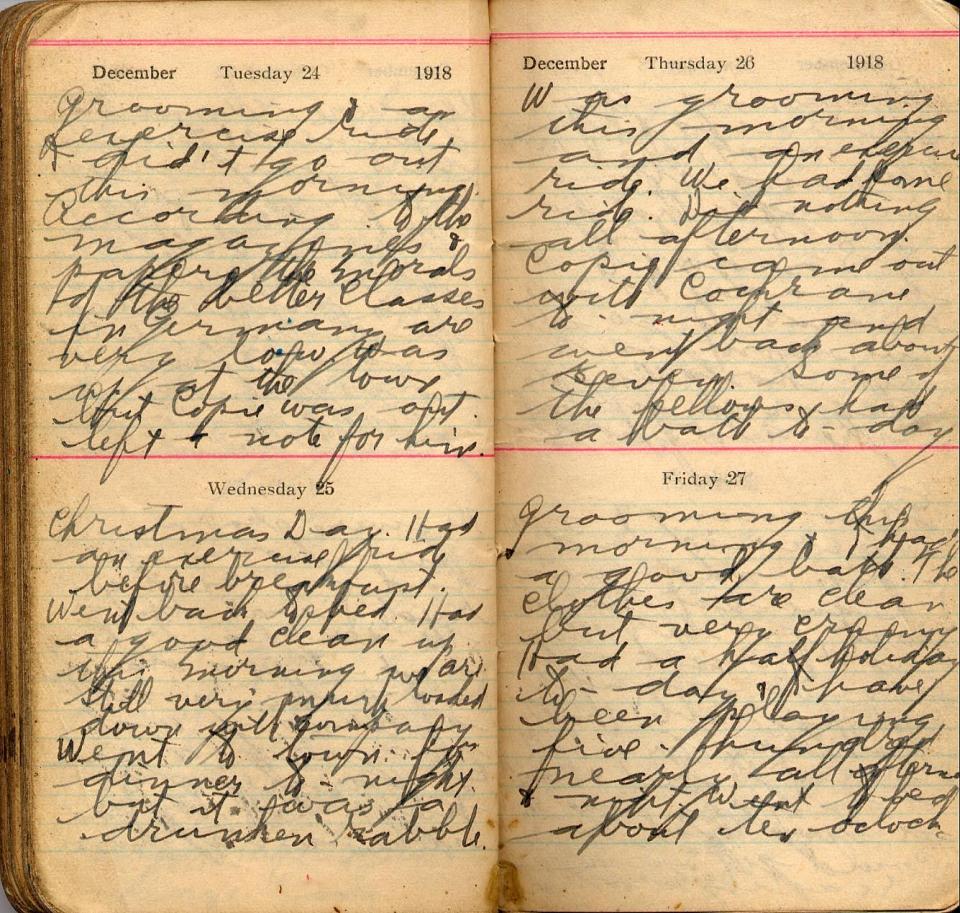 December Tuesday 24 1918
Grooming & an
exercise ride,
I didn't go out
this morning.
According to the
magazines &
papers the morals
of the better classes
in Germany are
very low. Was
up at the town
but Copie was out.
left a note for him.
Wednesday 25
Christmas Day. Had
an exercise ride
before breakfast.
Went back to bed. Had
a good clean up
this morning we are
still very much loaded
down with
Went to town for
dinner to-night
but it was a
drunken rabble.
December Thursday 26 1918
Was grooming
this morning
and an exercise
ride. We had some
ride. Did nothing
all afternoon.
Copie came out
with Cochrane
to-night and
went back about
seven. Some of
the fellows had
a bath to-day
Friday 27
Grooming this
morning & had
a good bath. The
clothes are clean
but very
Had a half holiday
to-day & have
been playing
five hundred
nearly all
night. Went to bed
about ten oclock